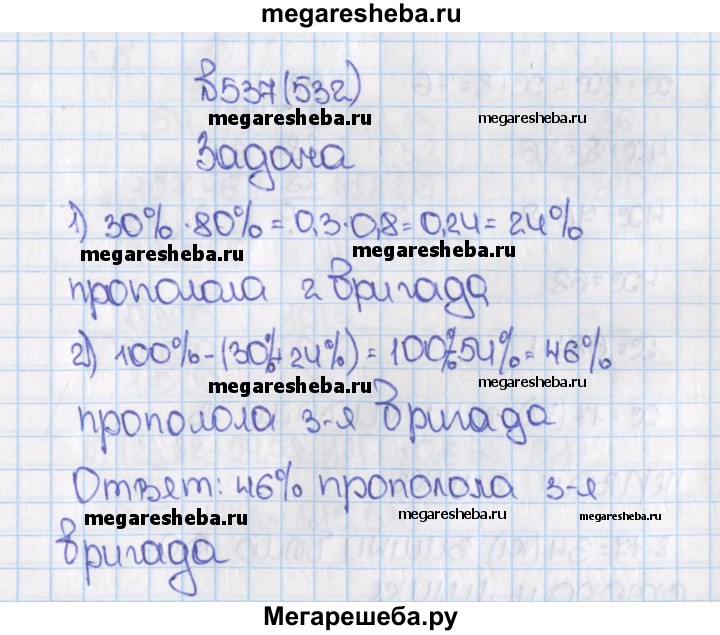 megaresheba.ru
№537(532)
megaresheba.ru megaresheba.ru
Задача
1) 30% · 80% = 0,3 · 0,8 = 0,24 = 24%
megaresheba.ru megaresheba.ru
прополола 2 бригада
2) 100% - (30% + 24%) = 100% - 54% = 46%
megaresheba.ru megaresheba.ru
прополола 3-я бригада
Ответ: 46% прополола 3-я
megaresheba.ru megaresheba.ru megaresheba.ru
бригада
Мегарешеба.ру